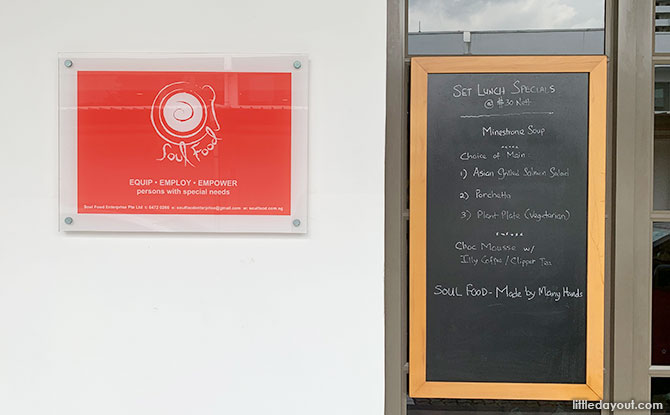 Soul Food
EQUIP • EMPLOY • EMPOWER
persons with special needs
Soul Food Enterprise Pte Ltd t: 6472 0266 e: soulfoodenterprise@gmail.com w: soulfood.com.sg
SET LUNCH SPECIALS
@ $30 Nett
Minestrone Soup
Choice of Main
1) Asian Grilled Salmon Salad
2) Porchetta
3) Plant Plate (Vegetarian)
Choc Mousse w/
Illy Coffee / Clipper Tea
SOUL FOOD - Made by Many Hands
littledayout.com